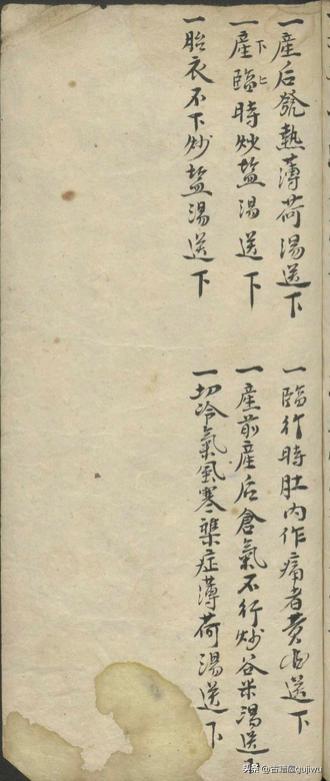 一產后發熱薄荷湯送下
一臨行時肚內作痛者黄酒送下
一產臨時炒盐湯送下
下上
一產前產后倉氣不行炒谷米湯送下
一胎衣不下炒盐湯送下
一切冷氣風寒雜症薄荷湯送下
头条 @古籍屋gujiwu